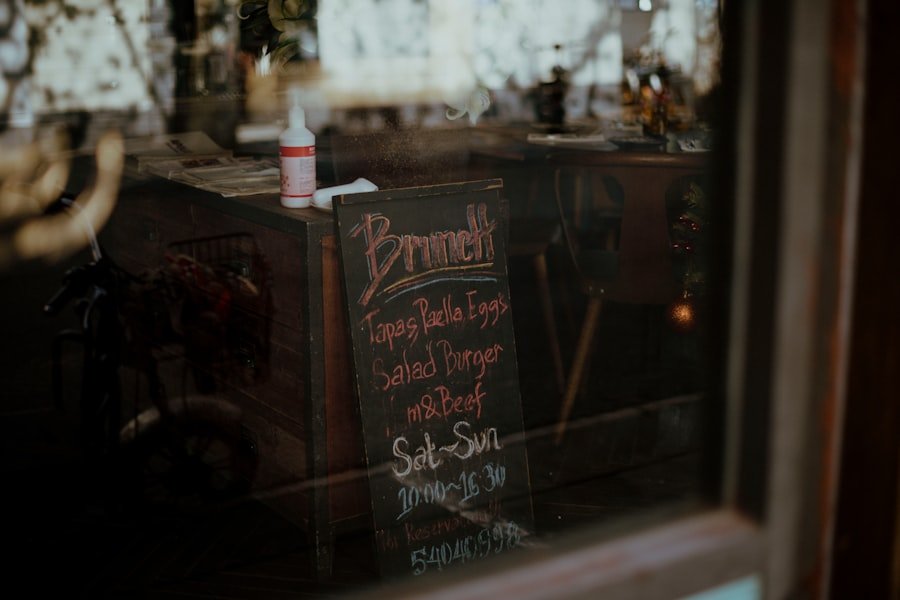 Brunch
Tapas, Paella, Eggs
Salad Burger
m&Beef
Sat~Sun
10:00~16:30
54040598